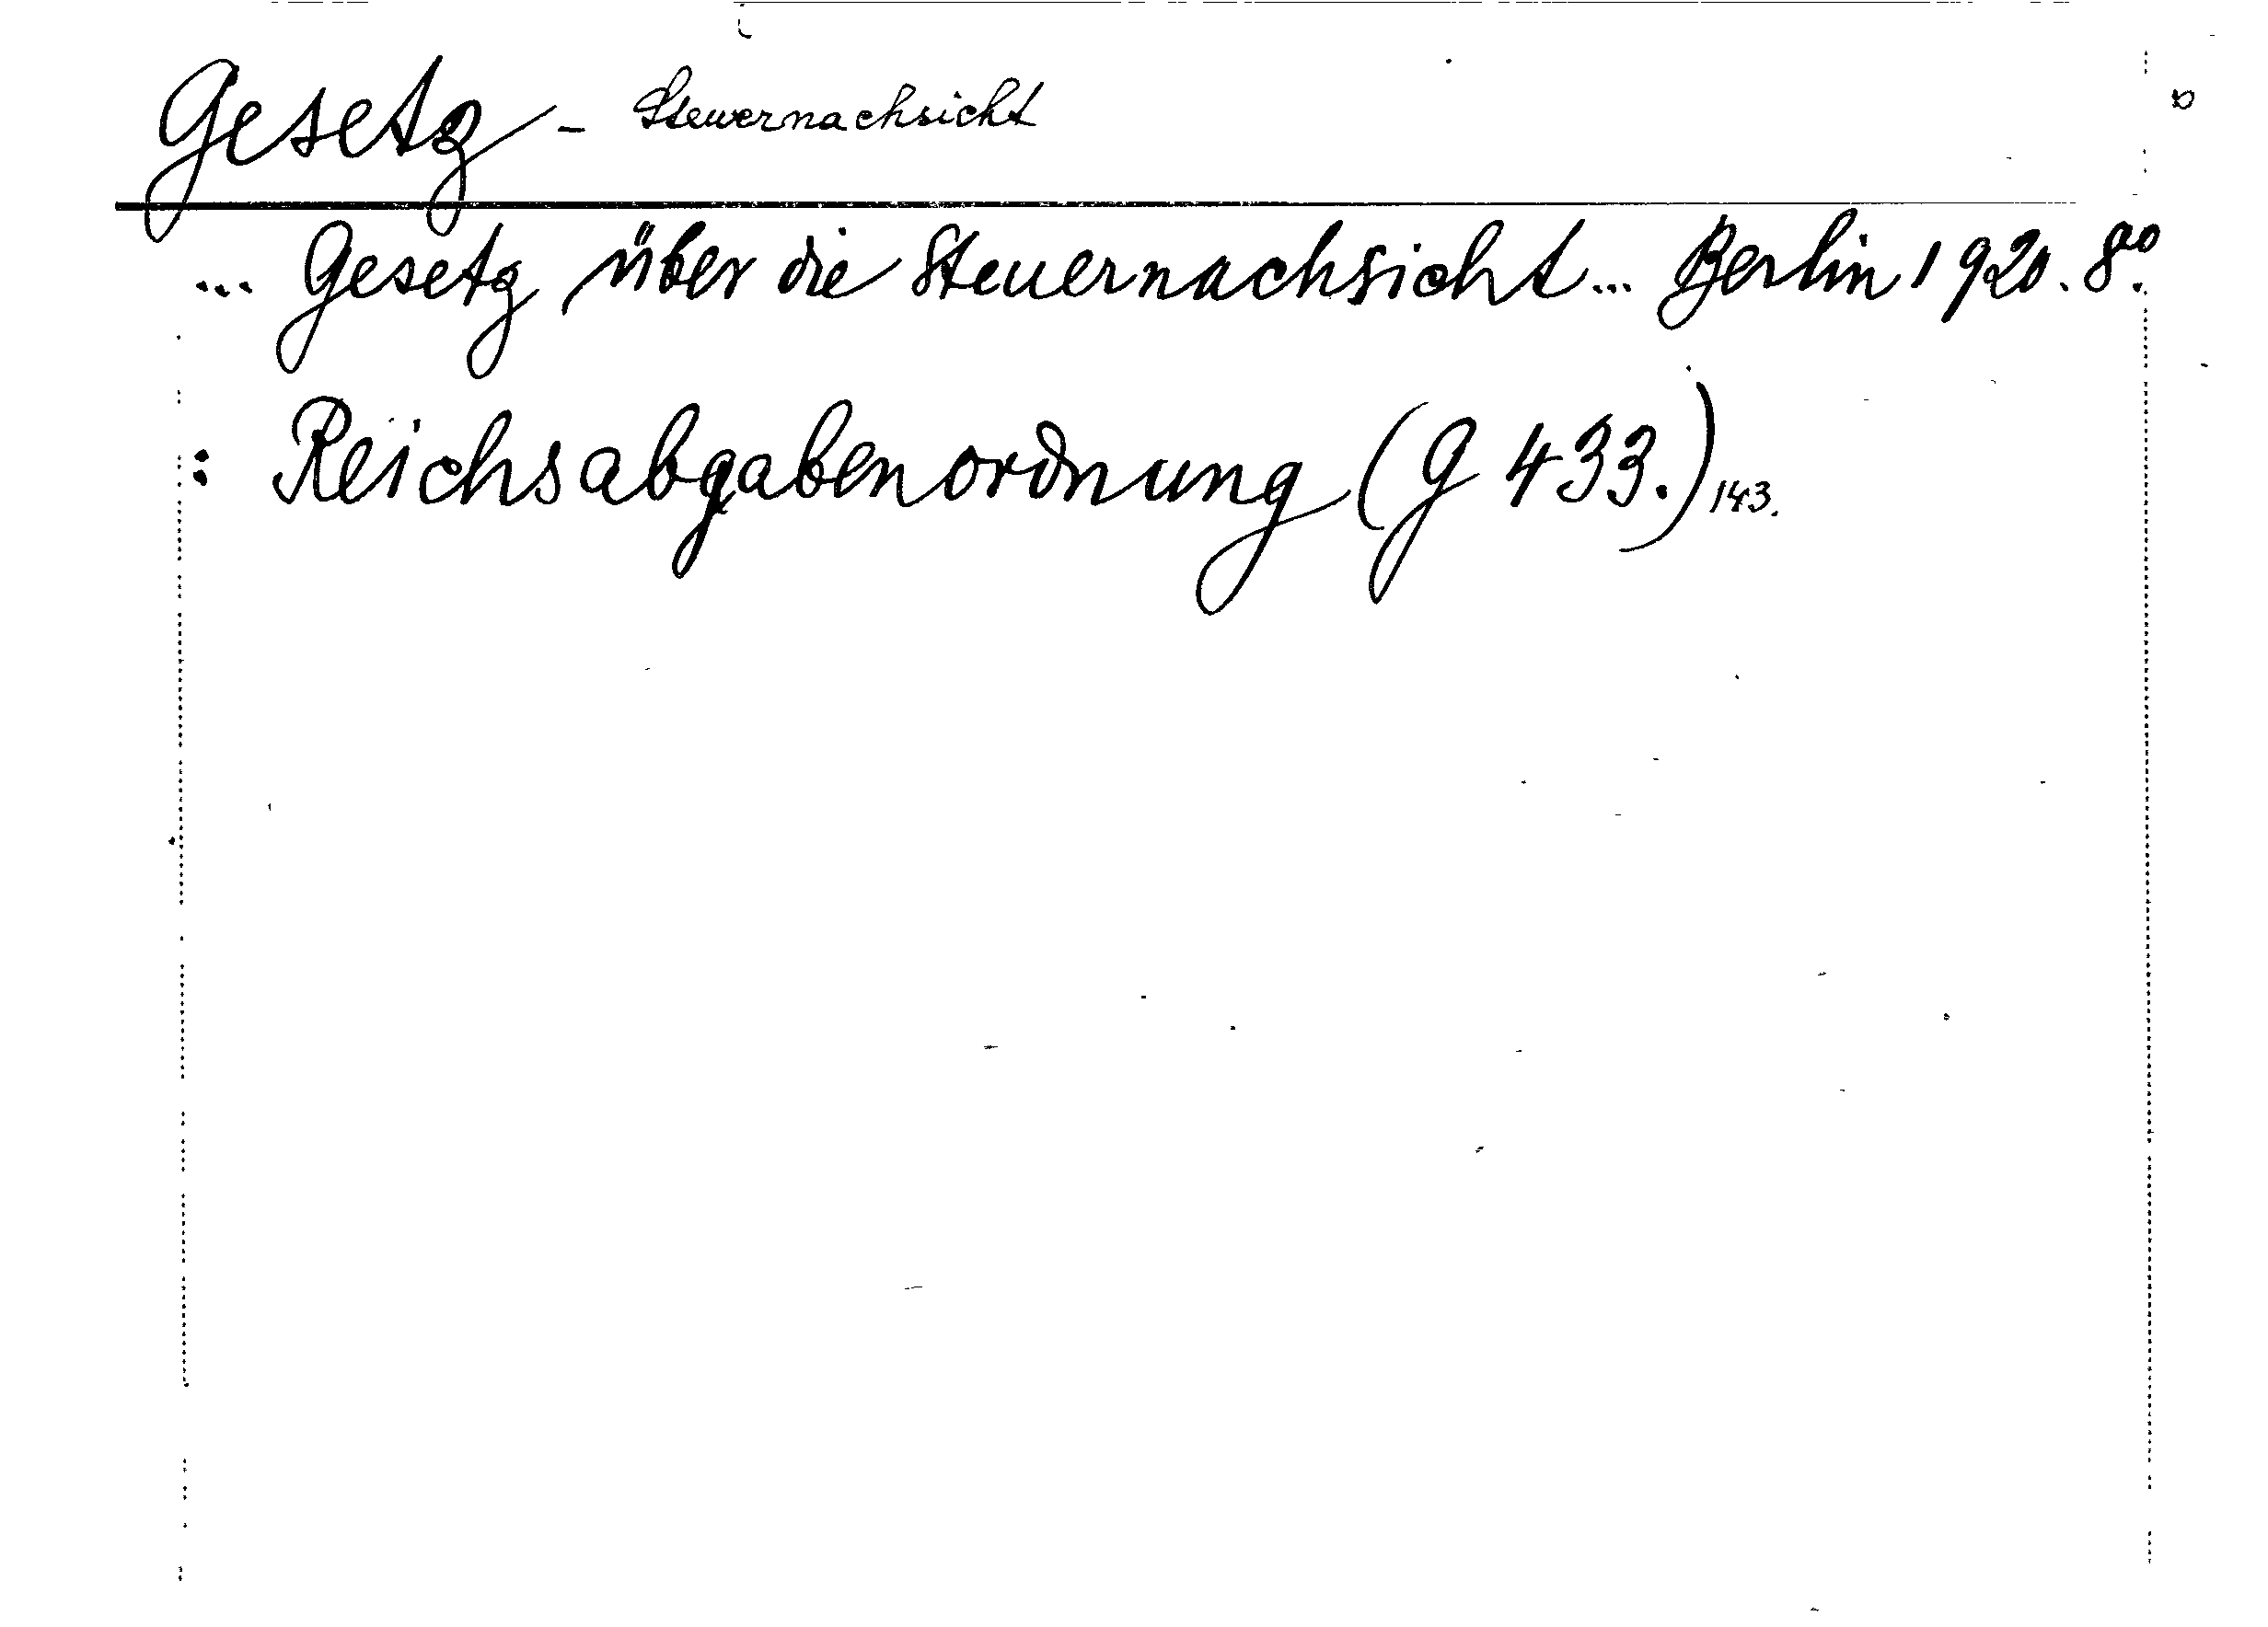 Gesetz - Steuernachsicht
... Gesetz über die Steuernachsicht ... Berlin 1920. 8°.
: Reichsabgabenordnung (G 433.) 143.